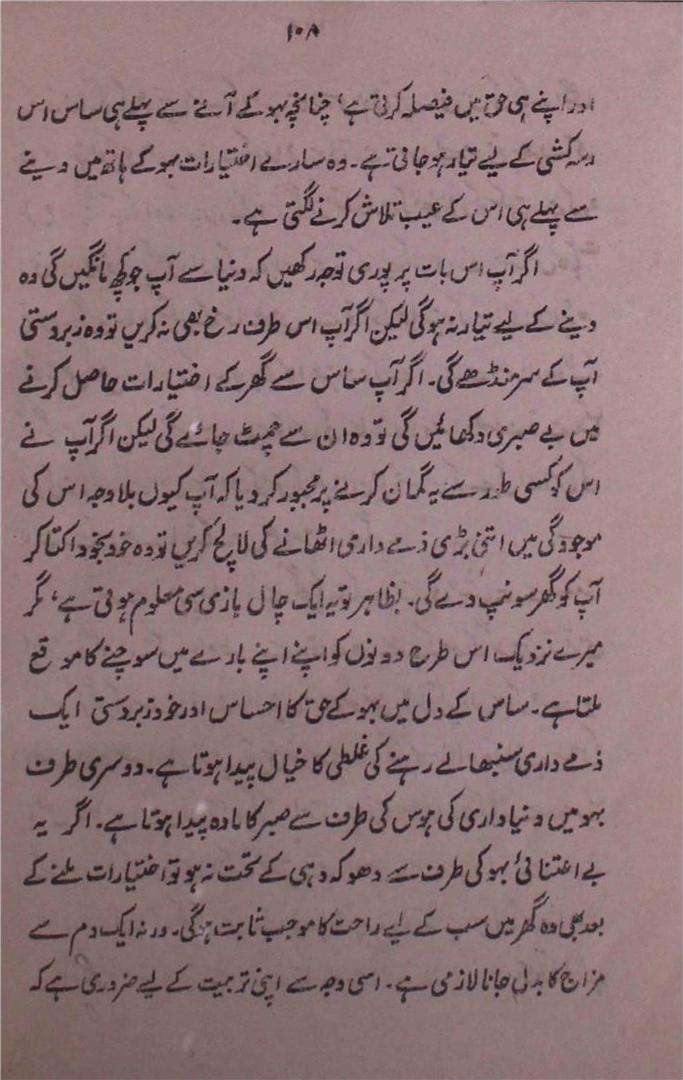 ۱۰۸
اور اپنے ہی حق میں فیصلہ کرتی ہے، چنانچہ بہو کے آنے سے پہلے ہی ساس اس
رسہ کشی کے لیے تیار ہو جاتی ہے۔ وہ سارے اختیارات بہو کے ہاتھ میں دینے
سے پہلے ہی اس کے عیب تلاش کرنے لگتی ہے۔
اگر آپ اس بات پر پوری توجہ رکھیں کہ دنیا سے آپ جو کچھ مانگیں گی وہ
دینے کے لیے تیار نہ ہو گی لیکن اگر آپ اس طرف رخ بھی نہ کریں تو وہ زبردستی
آپ کے سر منڈھے گی۔ اگر آپ ساس سے گھر کے اختیارات حاصل کرنے
میں بے صبری دکھائیں گی تو وہ ان سے چمٹ جائے گی لیکن اگر آپ نے
اس کو کسی طور سے یہ گمان کرنے پر مجبور کر دیا کہ آپ کیوں بلا وجہ اس کی
موجودگی میں اتنی بڑی ذمے داری اٹھانے کی لالچ کریں تو وہ خود بخود اکتا کر
آپ کو گھر سونپ دے گی۔ بظاہر تو یہ ایک چال بازی سی معلوم ہوتی ہے، مگر
میرے نزدیک اس طرح دونوں کو اپنے اپنے بارے میں سوچنے کا موقع
ملتا ہے۔ ساس کے دل میں بہو کے حق کا احساس اور خود زبردستی ایک
ذمے داری سنبھالے رہنے کی غلطی کا خیال پیدا ہوتا ہے۔ دوسری طرف
بہو میں دنیا داری کی ہوس کی طرف سے صبر کا مادہ پیدا ہوتا ہے۔ اگر یہ
بے اعتنائی بہو کی طرف سے دھوکہ دہی کے تحت نہ ہو تو اختیارات ملنے کے
بعد بھی وہ گھر میں سب کے لیے راحت کا موجب ثابت ہو گی۔ ورنہ ایک دم سے
مزاج کا بدل جانا لازمی ہے۔ اسی وجہ سے اپنی تربیت کے لیے ضروری ہے کہ